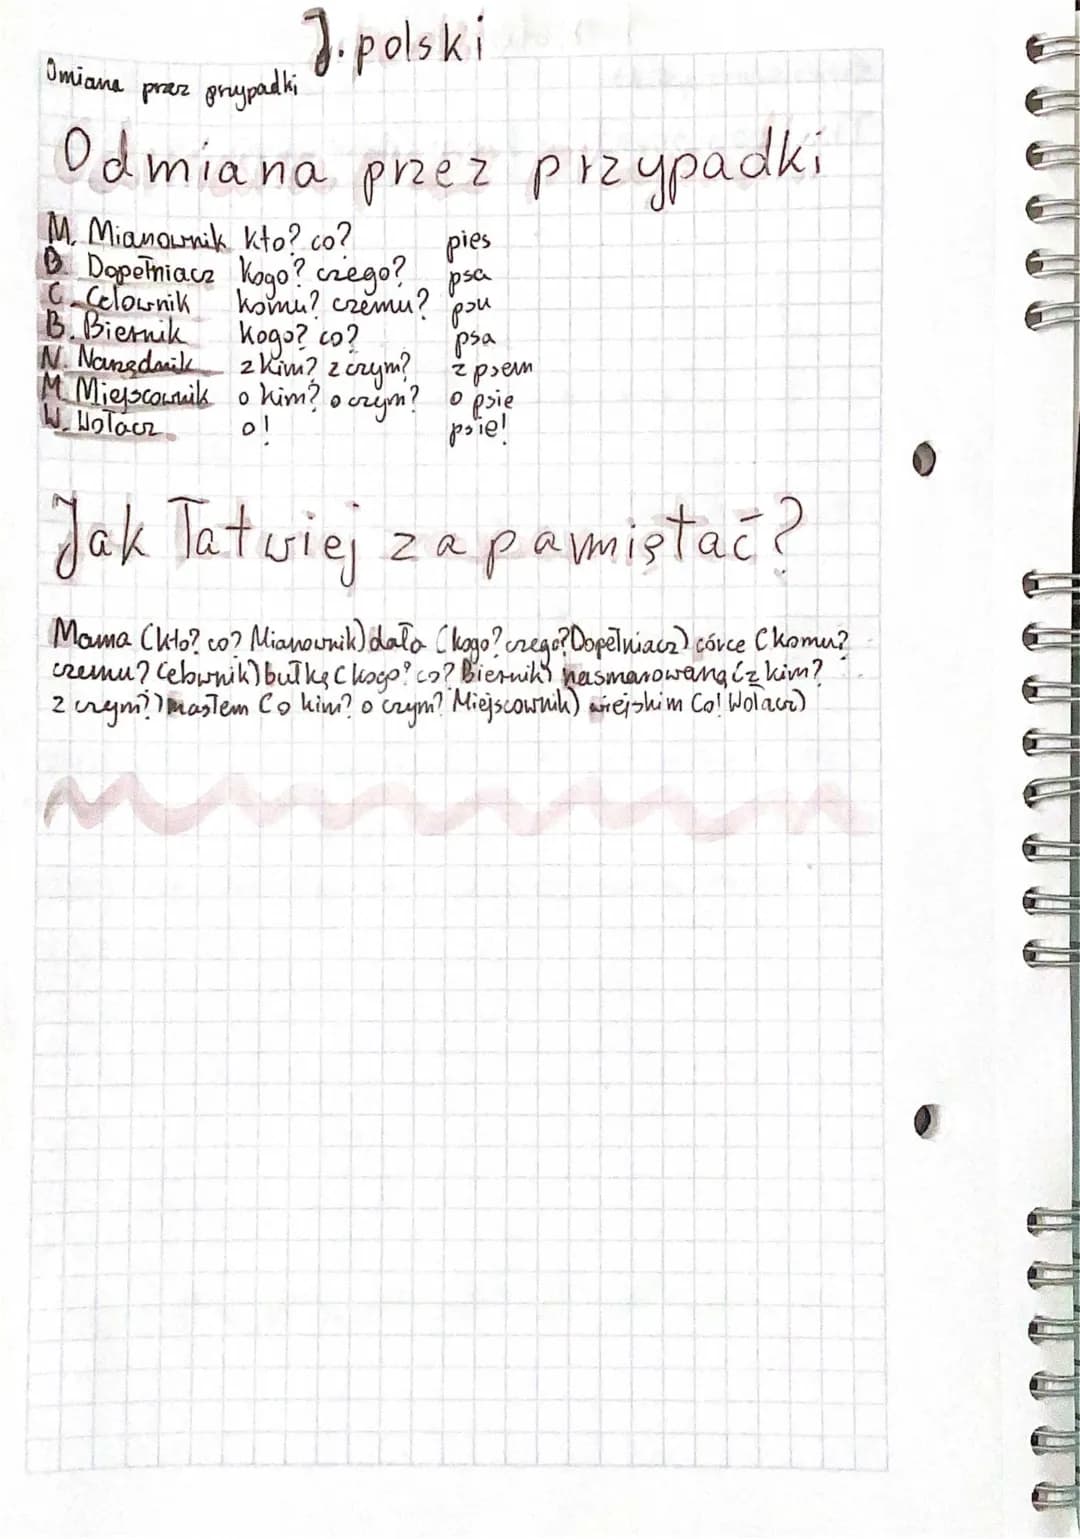 J. polski
Omiana przez przypadki
Odmiana przez przypadki
M. Mianownik kto? co? pies
D. Dopełniacz kogo? czego? psa
C. Celownik komu? czemu? psu
B. Biernik kogo? co? psa
N. Narzędnik z kim? z czym? z psem
M. Miejscownik o kim? o czym? o psie
W. Wołacz o! psie!
Jak łatwiej zapamiętać?
Mama (kto? co? Mianownik) dała (kogo? czego? Dopełniacz) córce (komu?
czemu? Celownik) bułkę (kogo? co? Biernik) nasmarowaną (z kim?
z czym?) masłem (o kim? o czym? Miejscownik) wiejskim (o! Wołacz)